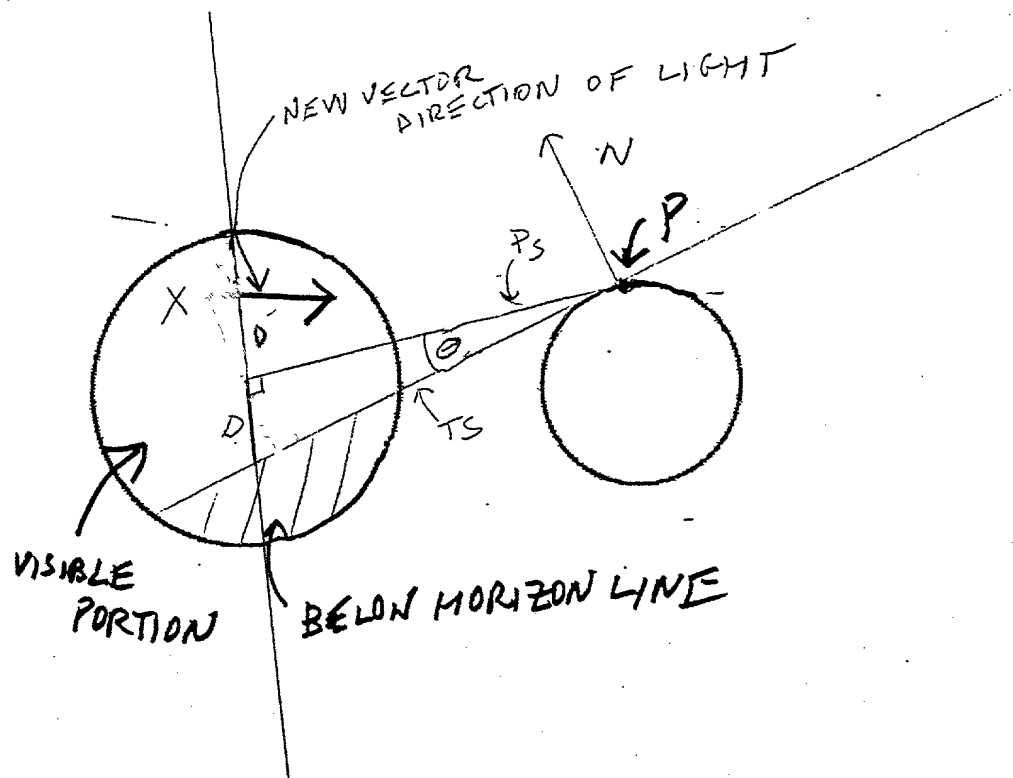 NEW VECTOR
DIRECTION OF LIGHT
N
P
PS
X
D
θ
D
TS
VISIBLE
PORTION
BELOW HORIZON LINE